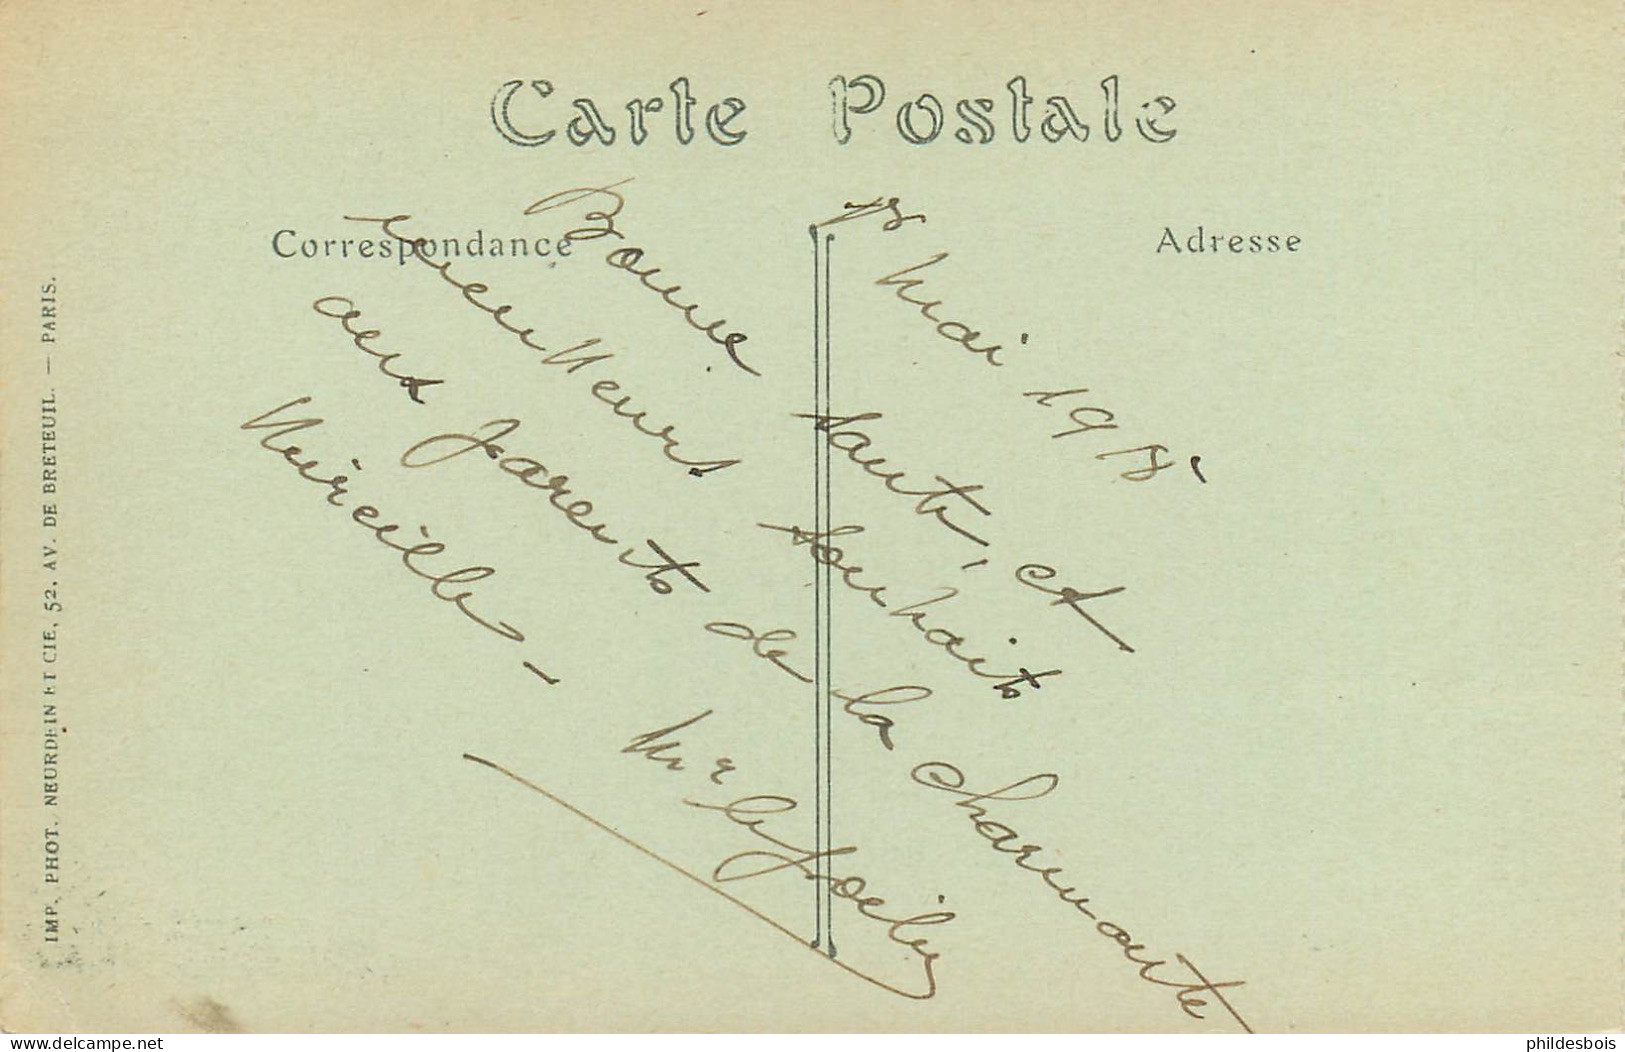 Carte Postale
Correspondance
Adresse
1er Mai 1918
Bonne Santé, et
meilleurs souhaits
aux parents de la charmante
Mireille, -
Mr
IMP. PHOT. NEURDEIN ET CIE, 52, AV. DE BRETEUIL. — PARIS.
delcampe.net
phildesbois